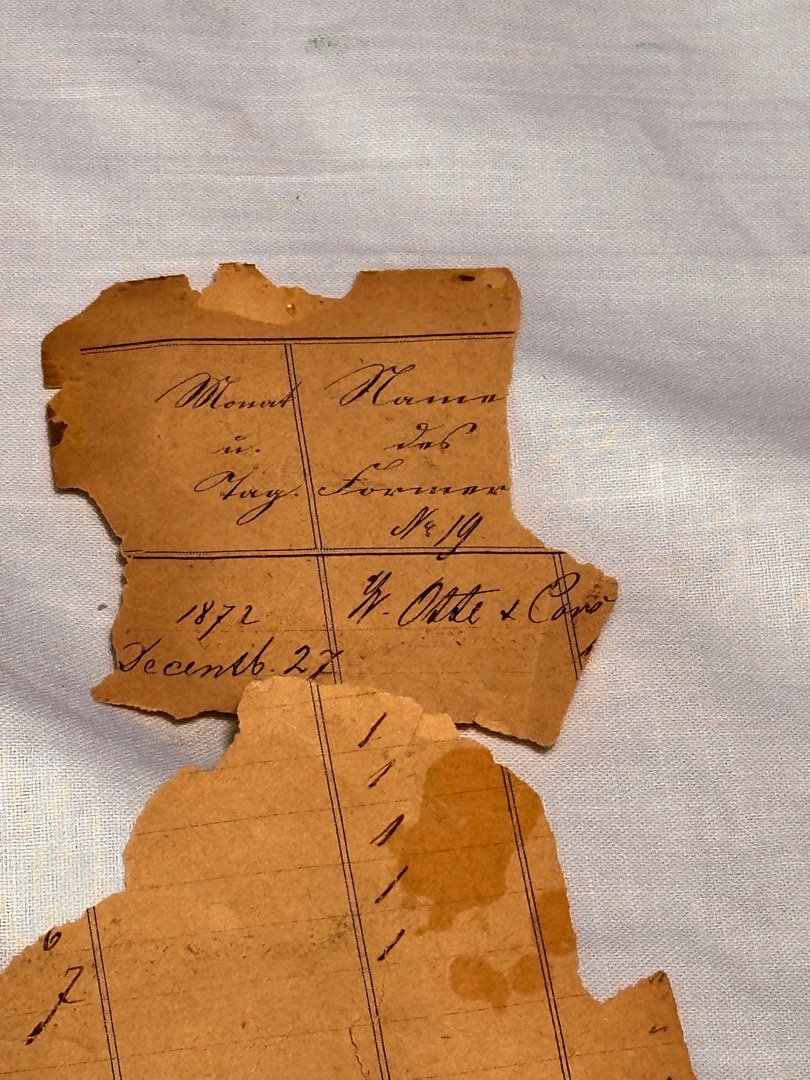 Monat Name
u. des
Tag. Former
No 19
1872 W. Otte & Cons
Decemb. 27
1
1
1
1
1
6
7